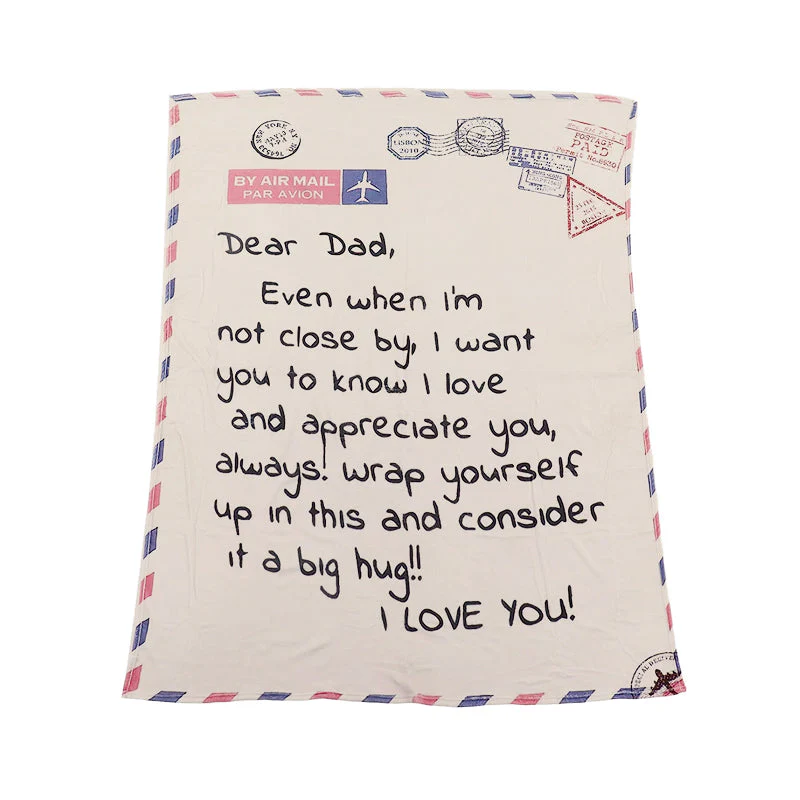 LISBON
2010
POSTAGE
PAID
Permit No.
BY AIR MAIL
PAR AVION
Dear Dad,
Even when I'm
not close by, I want
you to know I love
and appreciate you,
always! Wrap yourself
up in this and consider
it a big hug!!
I LOVE YOU!
SPECIAL DELIVERY